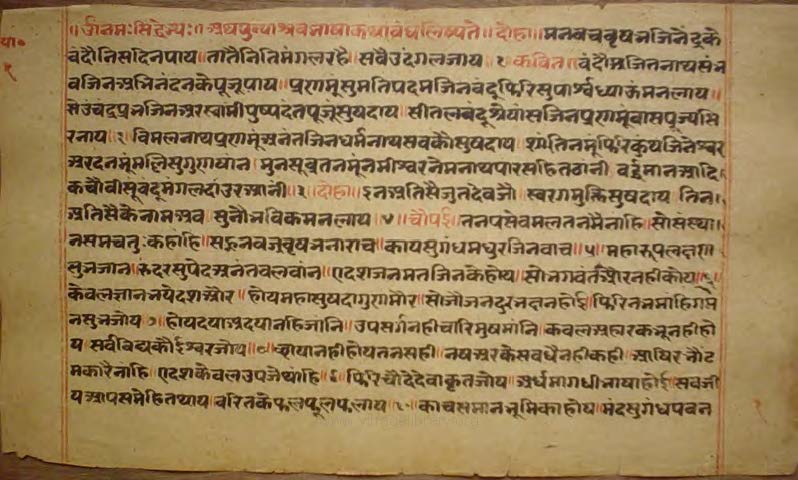 ॥ॐनमःसिद्धेभ्यः॥अथपुन्याश्रवभाषाकथाबंधलिष्यते॥दोहा॥मनबचबृषभजिनेंद्रके
बंदौनिसदिनपाय॥तातैनितिमंगलरहै॥सबैउदंगलजाय॥१कवित॥बंदौअजितनाथसंभ
वजिनअभिनंदनकेपूजूपाय॥प्रणमूंसुमतिपदमजिनबंदूफिरिसुपार्श्वध्याऊंमनलाय॥
सेउंचंद्रप्रभजिनअरस्वामीपुष्पदंतपूजूंसुषदाय॥सीतलबंदूश्रेयांसजिनप्रणमूंवासपूज्यसि
रनाय॥२विमलनाथप्रणमूंअनंतजिनधर्मनाथसबकौसुषदाय॥शांतिनमूंफिरिकुंथजिनेश्वर
अरहनमूंमल्लिसुगुणधान॥मुनसुव्रतनमूंनमीश्वरनेमनाथपारसहितठानी॥वर्द्धमानआदि
कचौवीसूबदूमंगलदाउरआनी॥३॥दोहा॥इनअतिसैजुतदेवजौ॥स्वरगमुक्तिसुषदाय॥तिन
अतिसैकेनामअब॥सुनौभविकमनलाय॥४॥चौपई॥तनपसेवमलतनमैनांहि॥सोसंस्था
नसमचतुःकहांहि॥सहनबज्रबृषभनाराच॥कायसुगंधमधुरजिनवाच॥५॥महारूपलक्षण
सुभजान॥रुदरसुपेदअनंतबलवान॥एदशजनमतजिनकेहोय॥सोभगवंतऔरनहीकोय॥६
केवलज्ञानभयेदशऔर॥होयमहासुषदागुणमौर॥सौजोजनदुरभक्षनहोई॥फिरिनभमाहिगम
नसुनजोय॥७॥होयदयाअदयानहिजांनि॥उपसर्गनहीचारिमुषमांनि॥कवलअहारकभूनहीहो
य॥सर्वविद्यकौईश्वरजोय॥८॥छायानहीहोयतनसही॥नषअरकेसबधैनहीकही॥आषिरभौट
मकारैनाहि॥एदशकेवलउपजेथांहि॥९॥फिरिचौदेदेवाकृतजोय॥अर्धमागधीभाषाहोई॥सबजी
यआपसमेहितथाय॥षरितकेफलफूलफलाय॥१०॥काचसमानभूमिकाहोय॥मंदसुगंधपवन